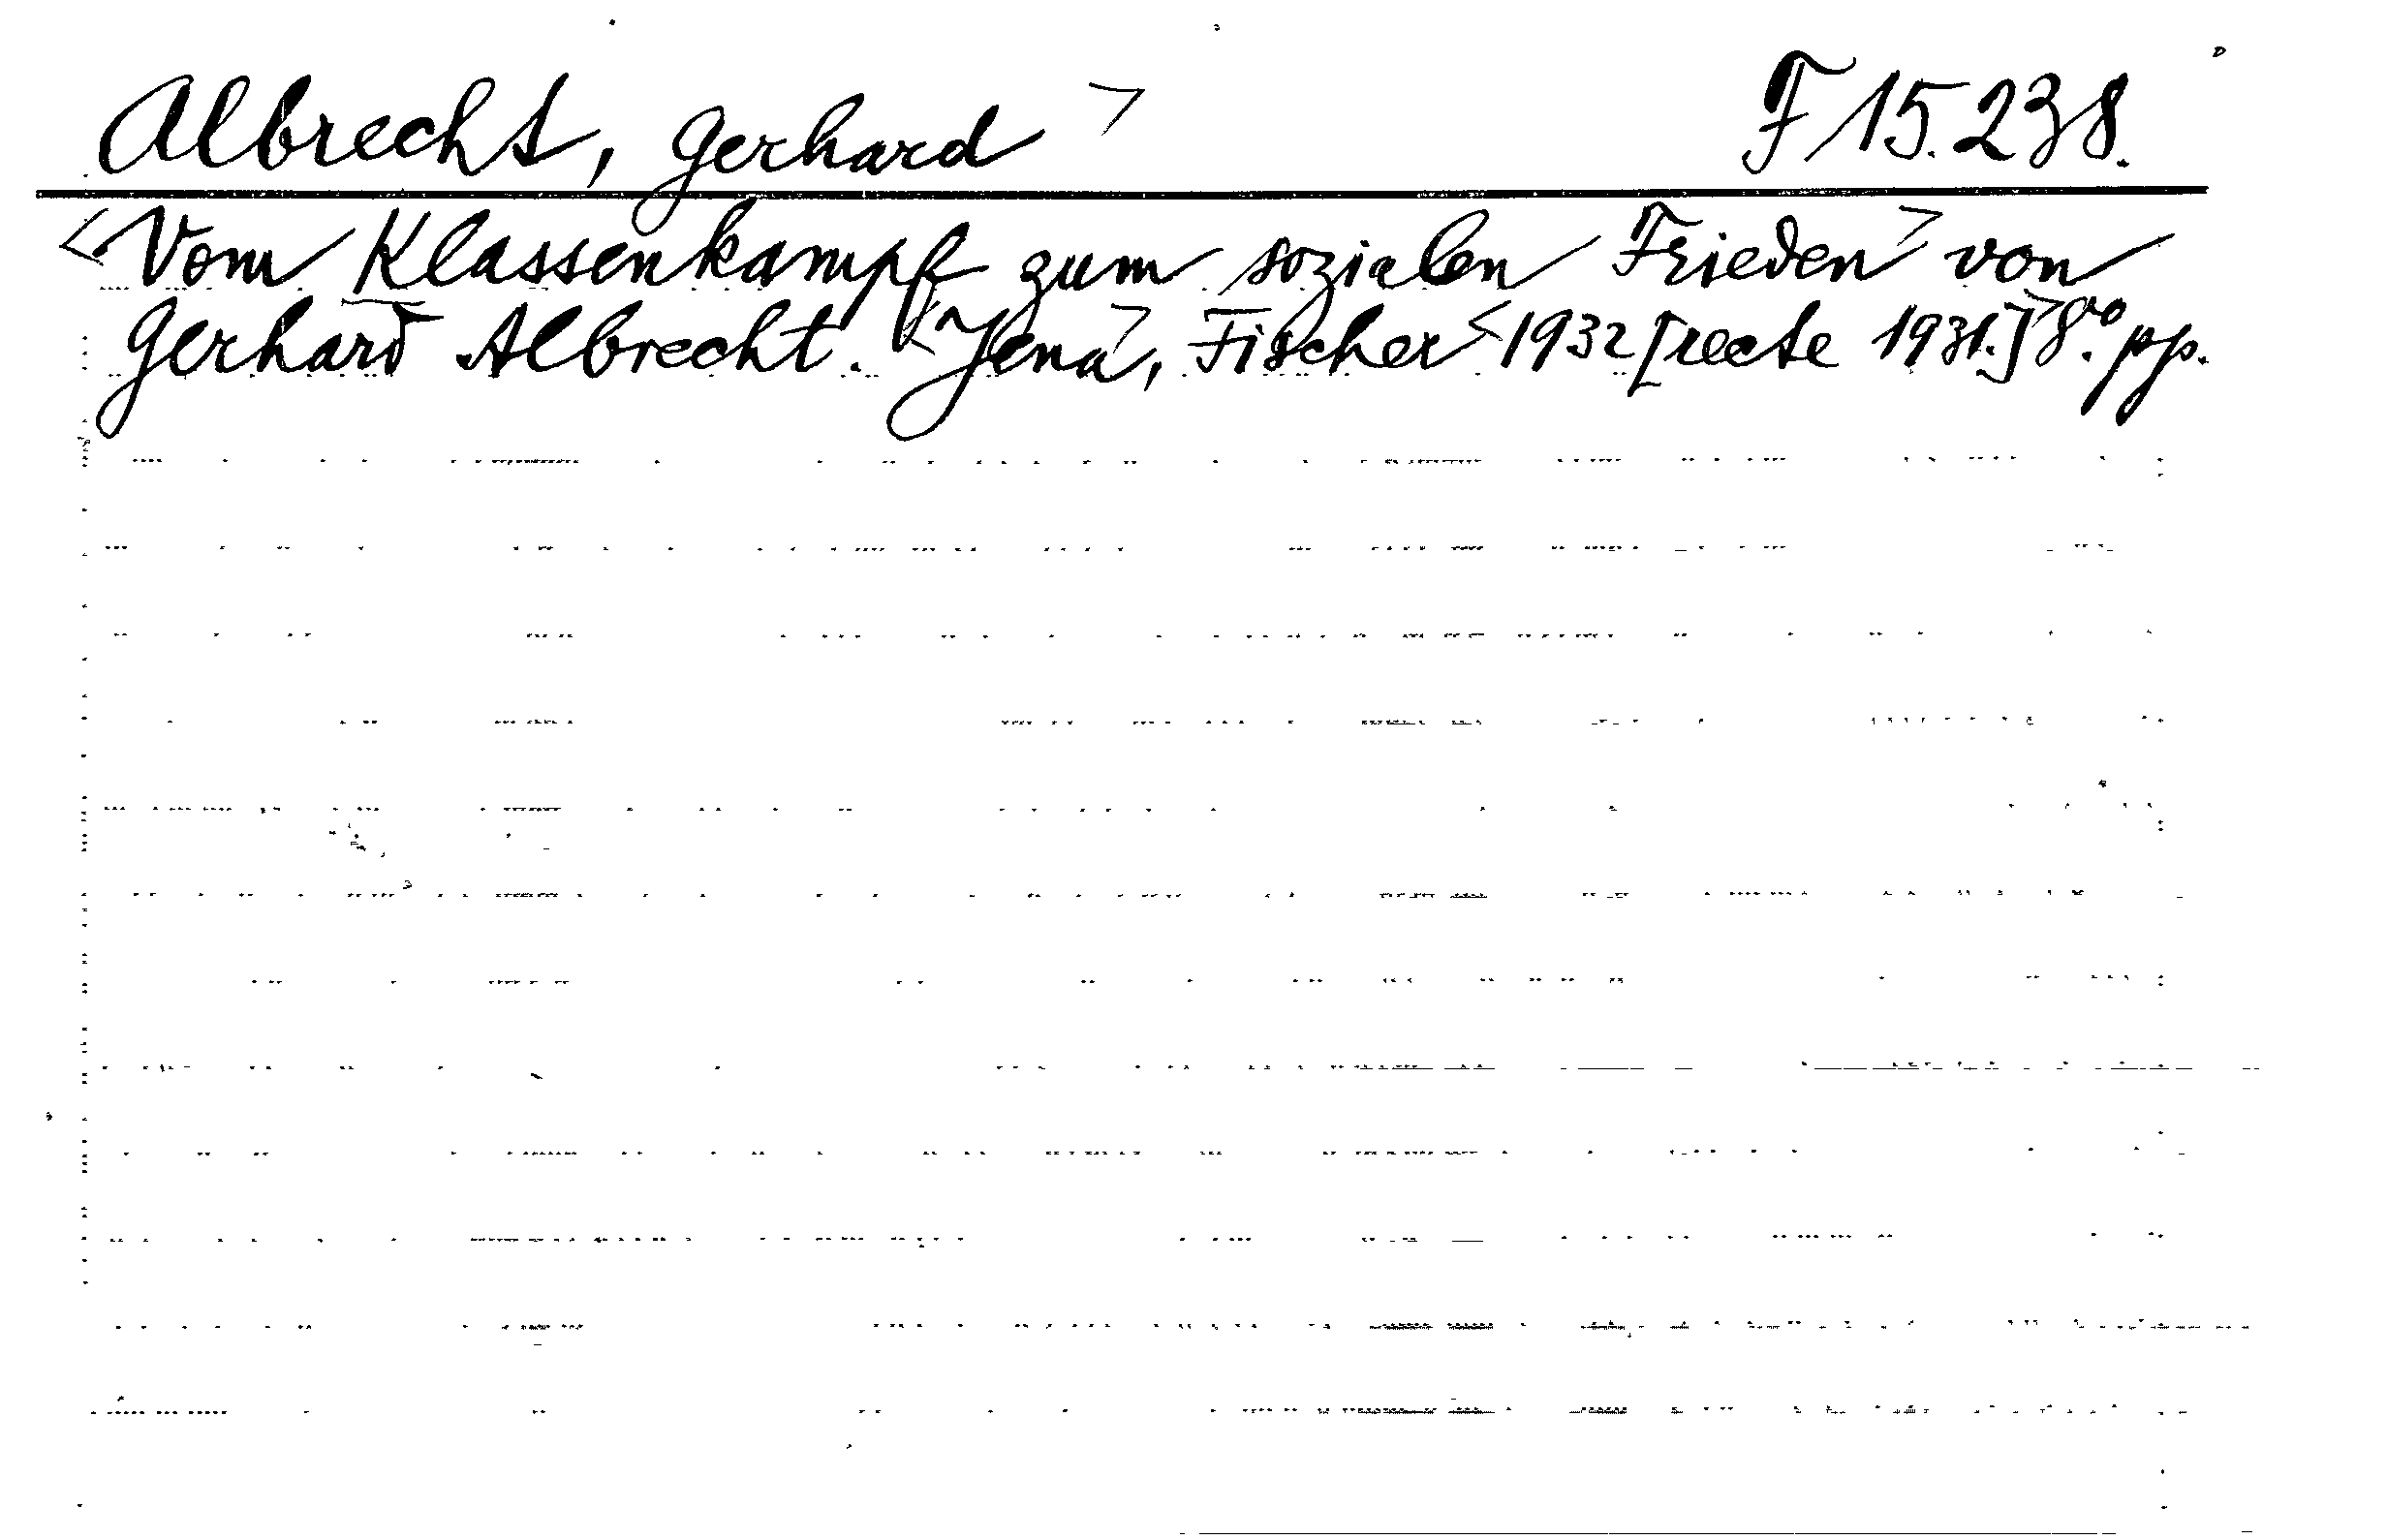 Albrecht, Gerhard> F 15.238.
<Vom Klassenkampf zum sozialen Frieden> von
Gerhard Albrecht. <Jena>, Fischer <1932 [recte 1931.]> 8.° pp.